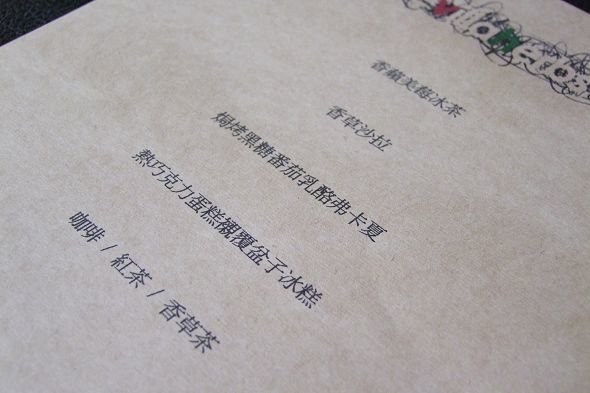 香蘋美莓冰茶
香草沙拉
焗烤黑糖番茄乳酪弗卡夏
熱巧克力蛋糕襯覆盆子冰糕
咖啡 / 紅茶 / 香草茶